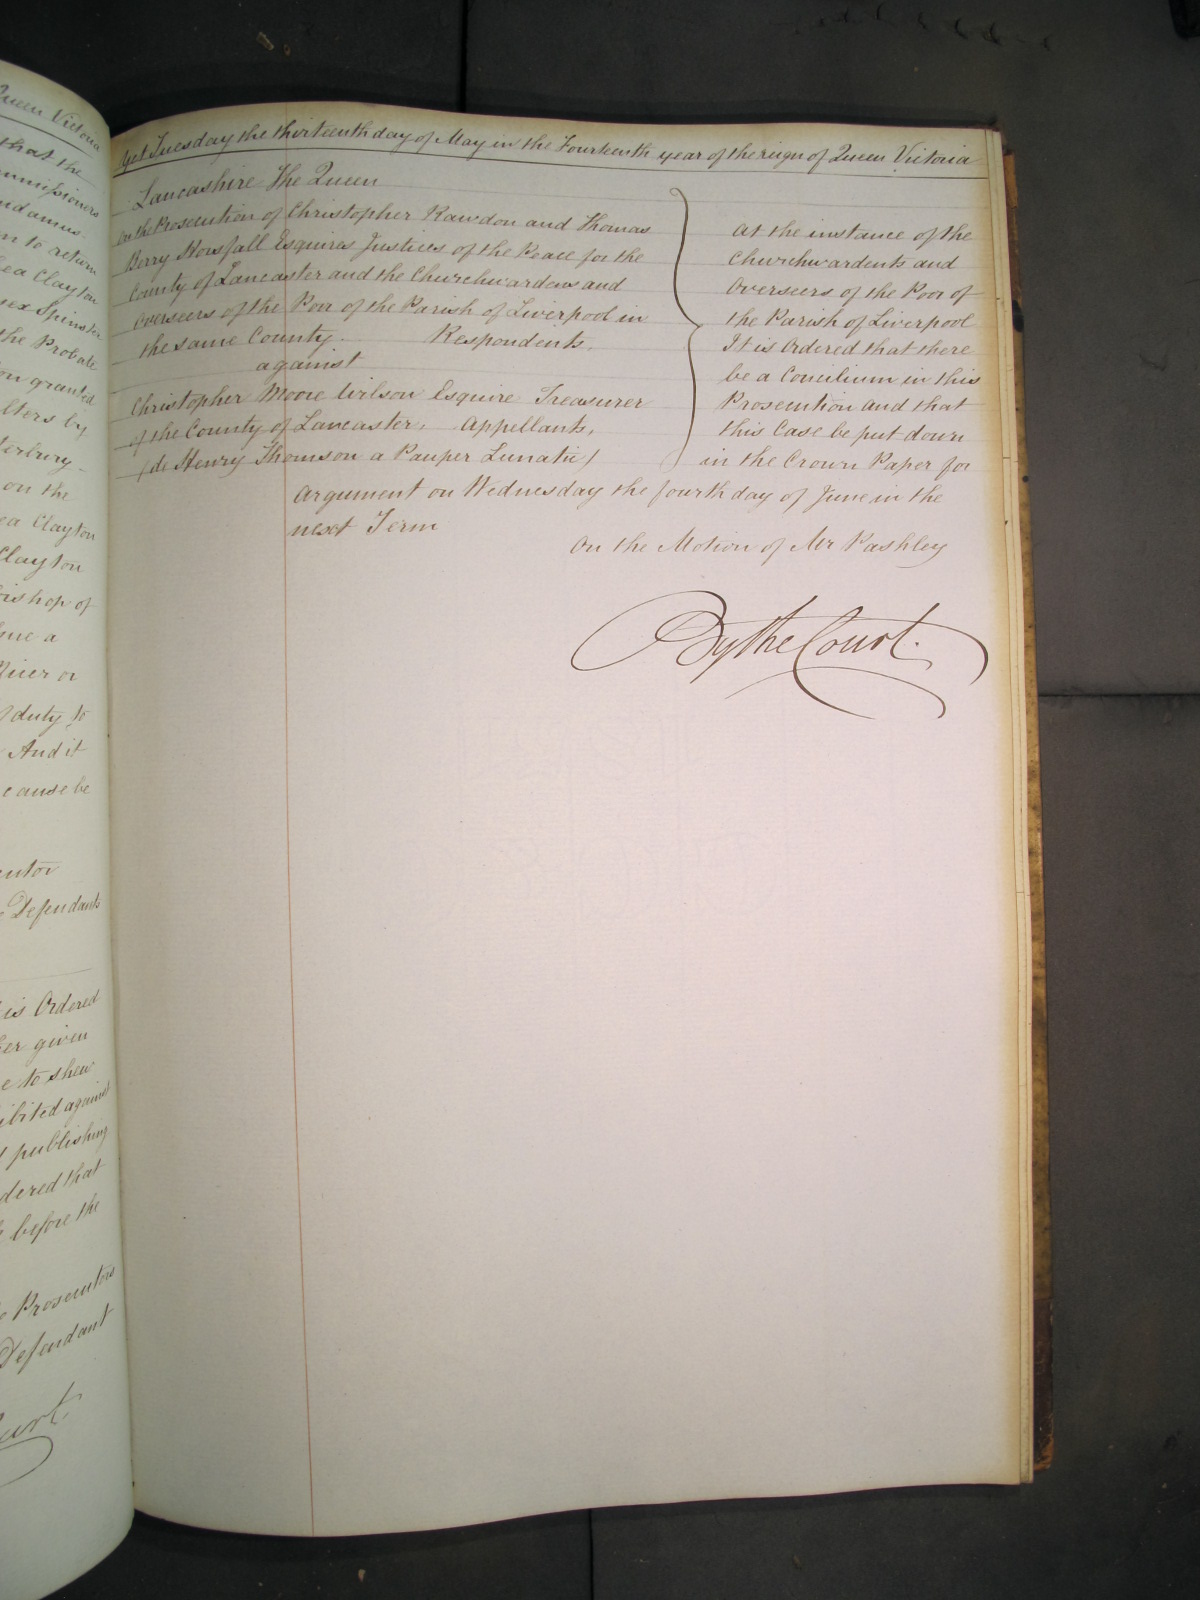 Queen Victoria
that the
mmissioners
ndamus
to return
ea Clayton
sex Spinster
the Probate
on granted
lters by
terbury
on the
ea Clayton
Clayton
bishop of
sue a
fficer or
duty to
And it
cause be
cutor
Defendants
is Ordered
er given
e to shew
ibited against
publishing
dered that
before the
Prosecutors
Defendant
Court.
Yet Tuesday the thirteenth day of May in the Fourteenth year of the reign of Queen Victoria
Lancashire The Queen
On the Prosecution of Christopher Rawdon and Thomas
Berry Horsfall Esquires Justices of the Peace for the
County of Lancaster and the Churchwardens and
Overseers of the Poor of the Parish of Liverpool in
the same County. Respondents.
against
Christopher Moore Wilson Esquire Treasurer
of the County of Lancaster. Appellants.
(de Henry Thomson a Pauper Lunatic)
At the instance of the
Churchwardents and
Overseers of the Poor of
the Parish of Liverpool
It is Ordered that there
be a Concilium in this
Prosecution and that
this Case be put down
in the Crown Paper for
Argument on Wednesday the fourth day of June in the
next Term
On the Motion of Mr Pashley
By the Court.